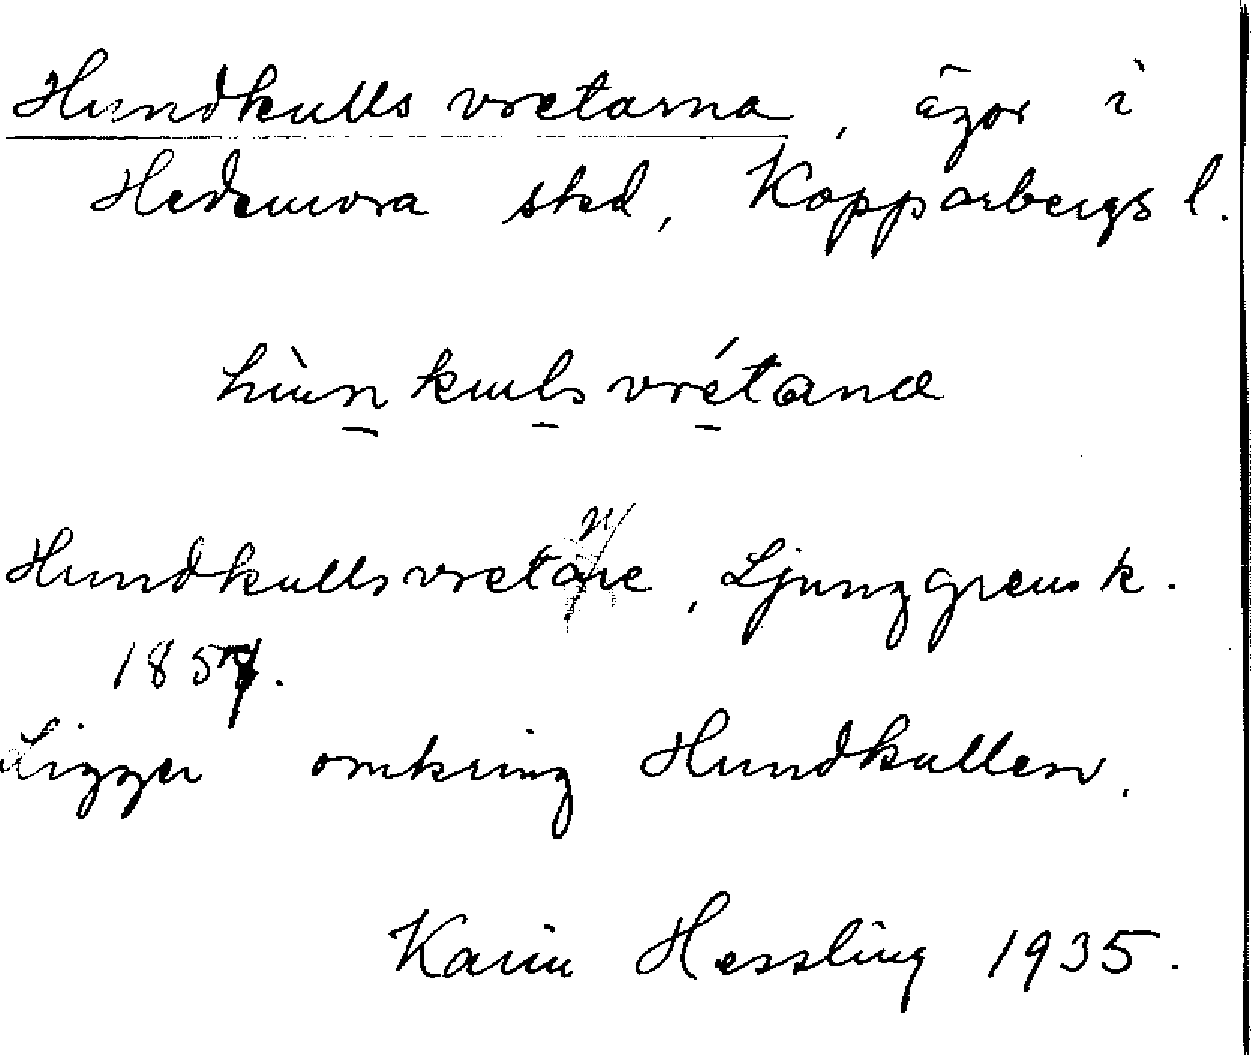 Hundkullsvretarna, ägor i
Hedemora skd, Kopparbergs l.
hùn kuls vrétana
Hundkullsvretarne, Ljunggrens k.
1857.
Ligger omkring Hundkullen.
Karin Hessling 1935.